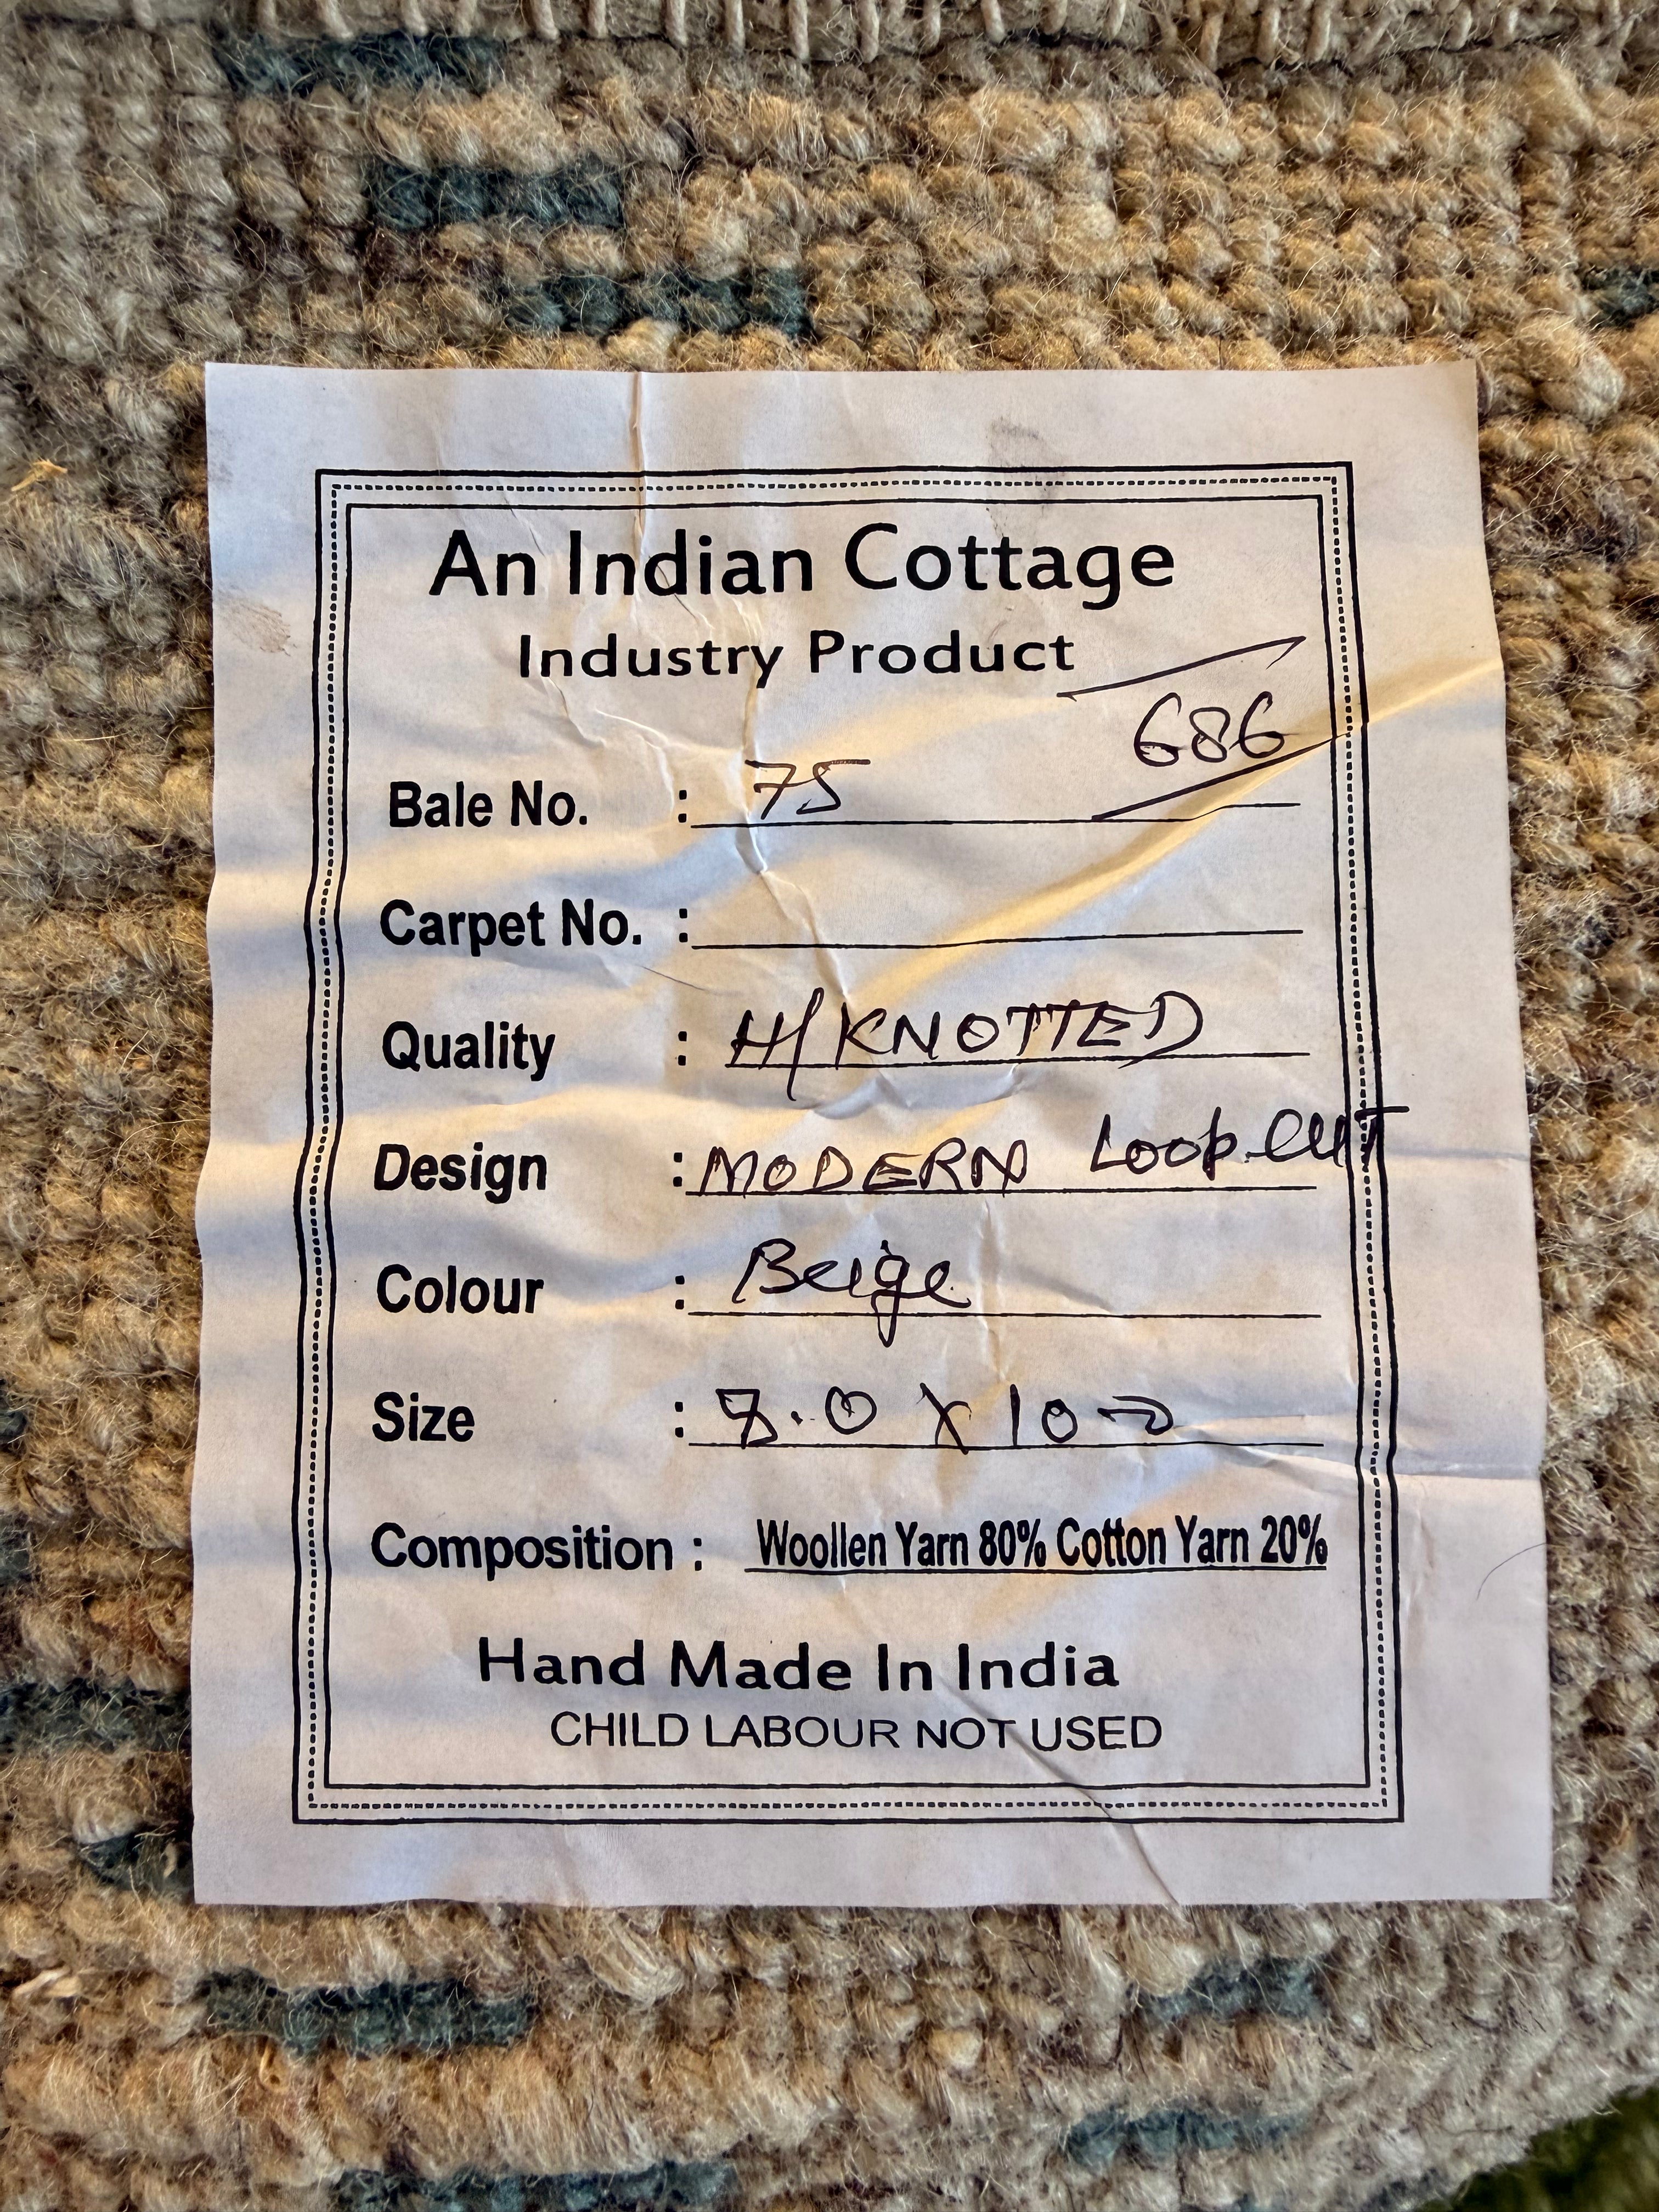 An Indian Cottage
Industry Product
686
Bale No. : 75
Carpet No. :
Quality : H/KNOTTED
Design : MODERN Loop CUT
Colour : Beige
Size : 8.0 X 10-0
Composition : Woollen Yarn 80% Cotton Yarn 20%
Hand Made In India
CHILD LABOUR NOT USED